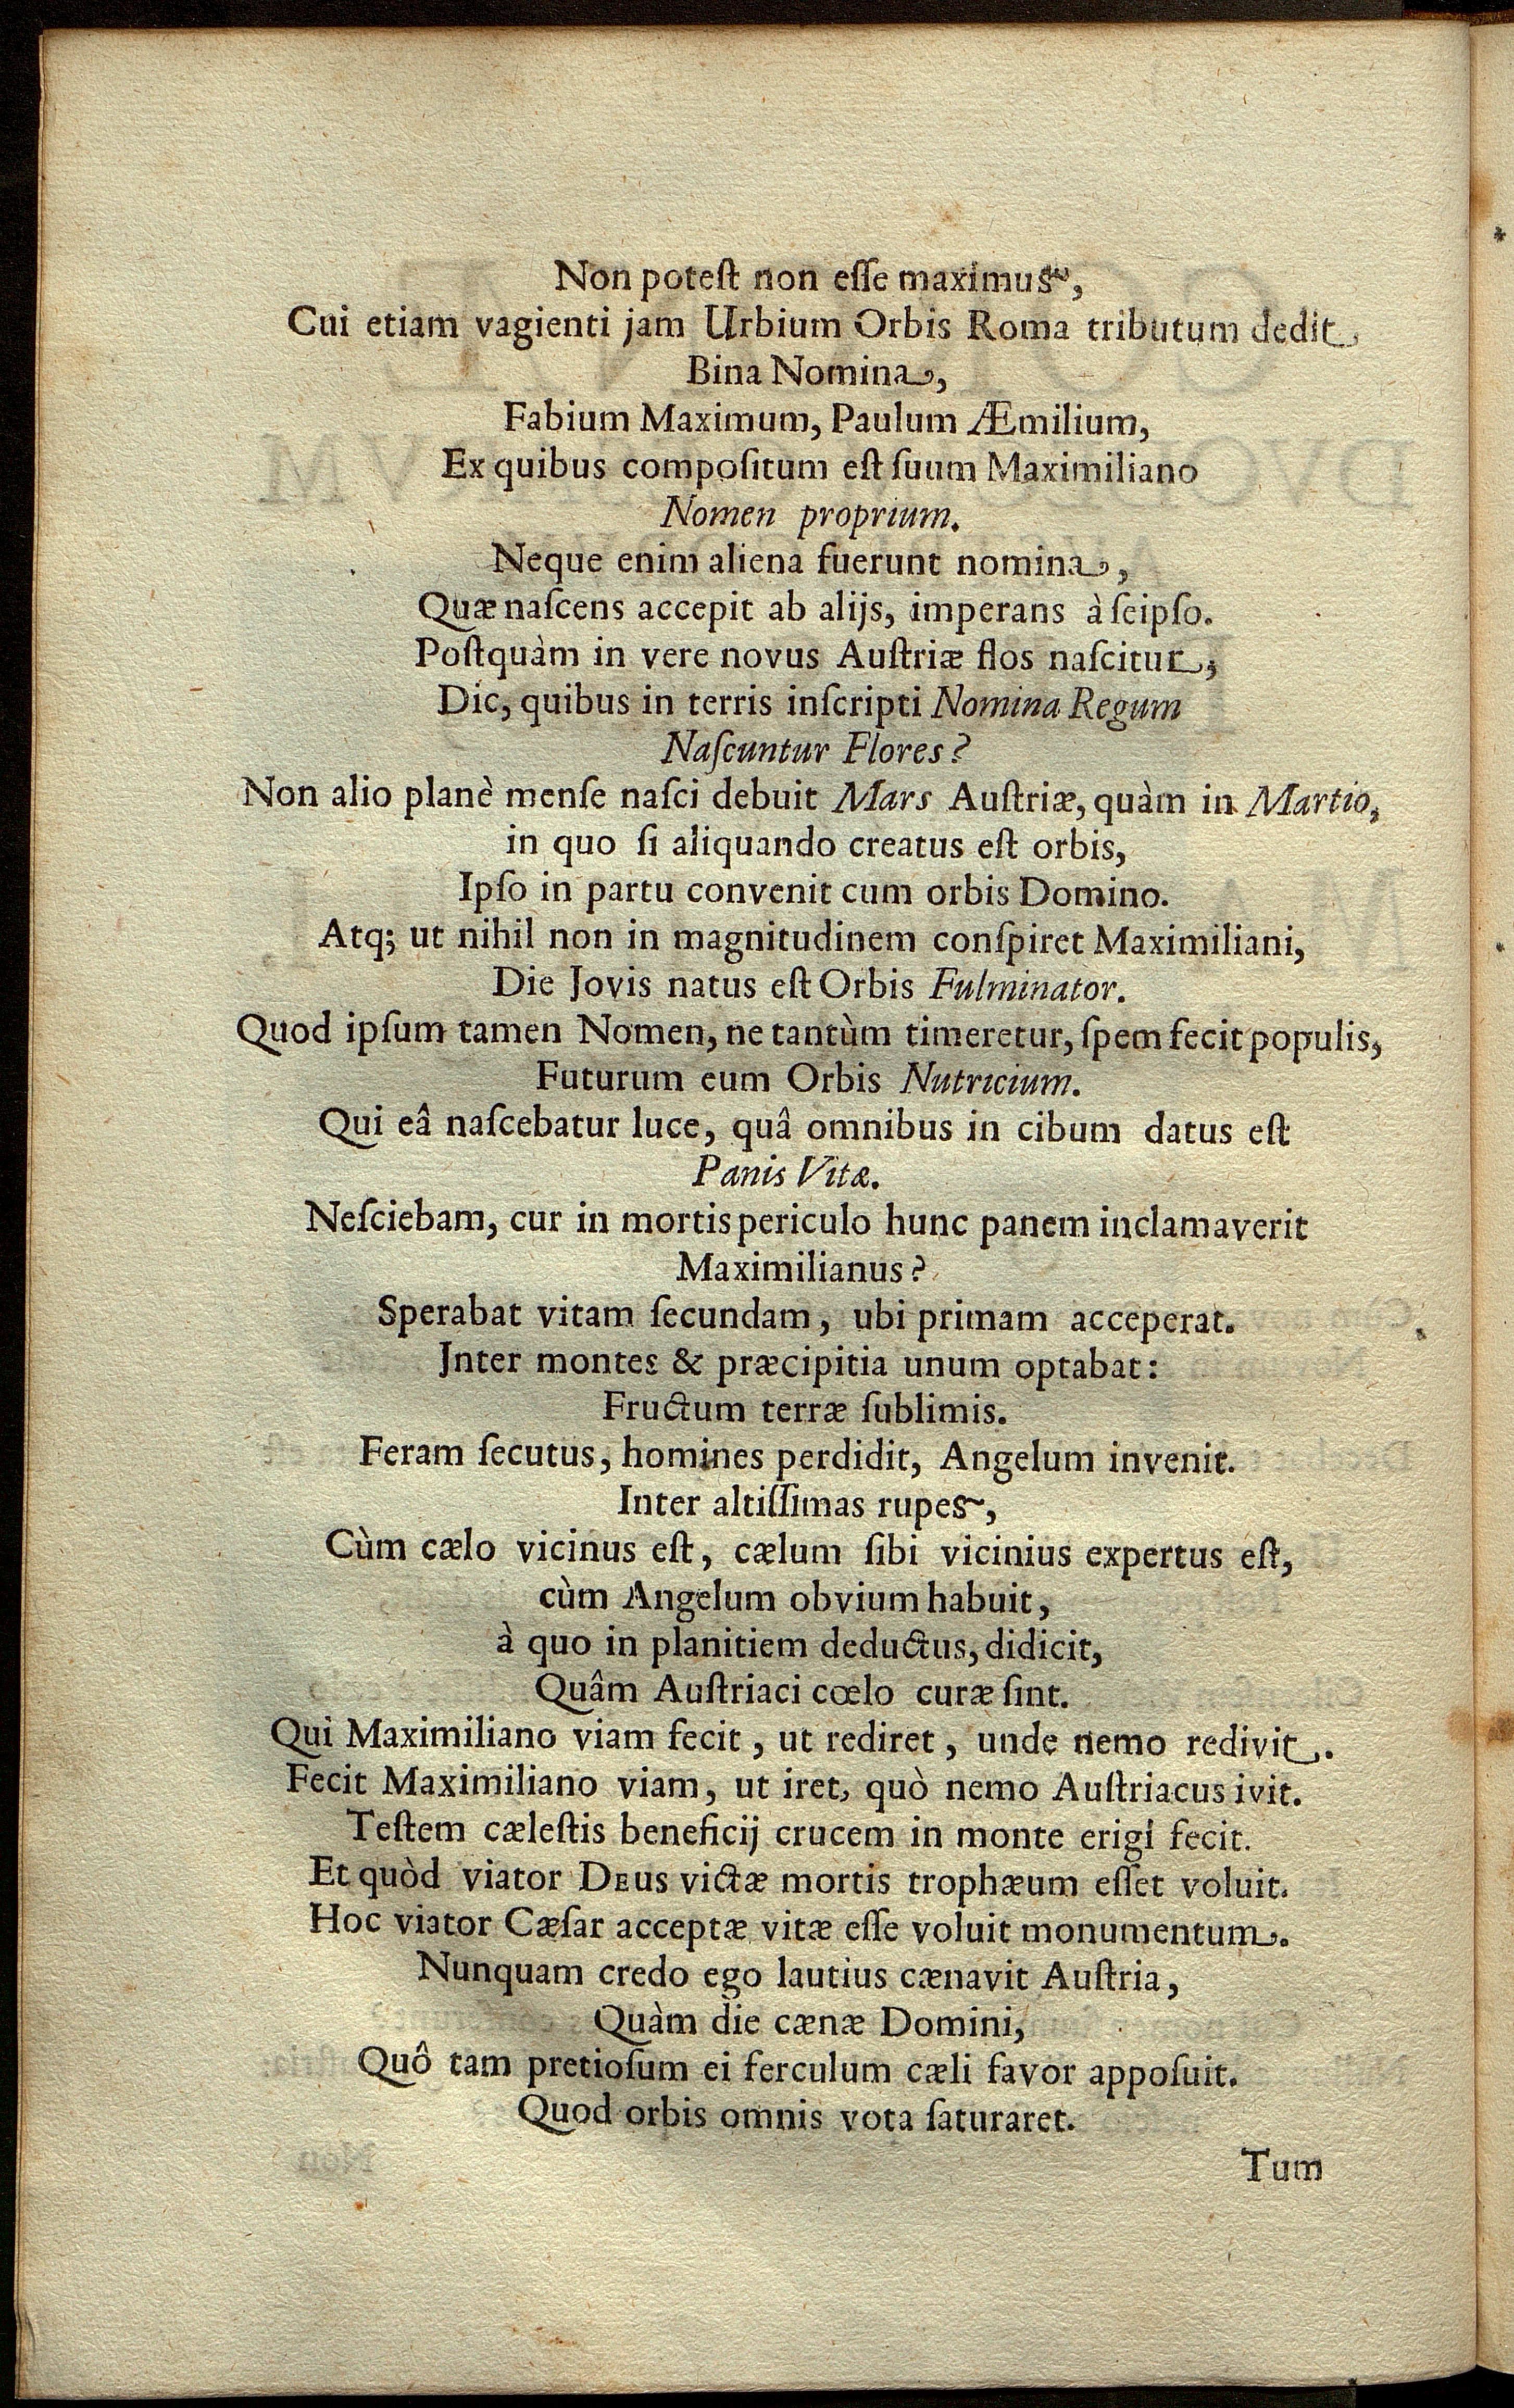 Non poteſt non eſſe maximus,
Cui etiam vagienti jam Urbium Orbis Roma tributum dedit
Bina Nomina,
Fabium Maximum, Paulum Æmilium,
Ex quibus compoſitum eſt ſuum Maximiliano
Nomen proprium.
Neque enim aliena fuerunt nomina,
Quæ naſcens accepit ab alijs, imperans à ſeipſo.
Poſtquàm in vere novus Auſtriæ flos naſcitur,
Dic, quibus in terris inſcripti Nomina Regum
Naſcuntur Flores?
Non alio planè menſe naſci debuit Mars Auſtriæ, quàm in Martio,
in quo ſi aliquando creatus eſt orbis,
Ipſo in partu convenit cum orbis Domino.
Atq; ut nihil non in magnitudinem conſpiret Maximiliani,
Die Jovis natus eſt Orbis Fulminator.
Quod ipſum tamen Nomen, ne tantùm timeretur, ſpem fecit populis,
Futurum eum Orbis Nutricium.
Qui eâ naſcebatur luce, quâ omnibus in cibum datus eſt
Panis Vitæ.
Neſciebam, cur in mortis periculo hunc panem inclamaverit
Maximilianus?
Sperabat vitam ſecundam, ubi primam acceperat.
Jnter montes & præcipitia unum optabat:
Fructum terræ ſublimis.
Feram ſecutus, homines perdidit, Angelum invenit.
Inter altiſſimas rupes,
Cùm cælo vicinus eſt, cælum ſibi vicinius expertus eſt,
cùm Angelum obvium habuit,
à quo in planitiem deductus, didicit,
Quâm Auſtriaci cœlo curæ ſint.
Qui Maximiliano viam fecit, ut rediret, unde nemo redivit.
Fecit Maximiliano viam, ut iret, quò nemo Auſtriacus ivit.
Teſtem cæleſtis beneficij crucem in monte erigi fecit.
Et quòd viator DEus victæ mortis trophæum eſſet voluit.
Hoc viator Cæſar acceptæ vitæ eſſe voluit monumentum.
Nunquam credo ego lautius cænavit Auſtria,
Quàm die cænæ Domini,
Quô tam pretioſum ei ferculum cæli favor appoſuit.
Quod orbis omnis vota ſaturaret.
Tum